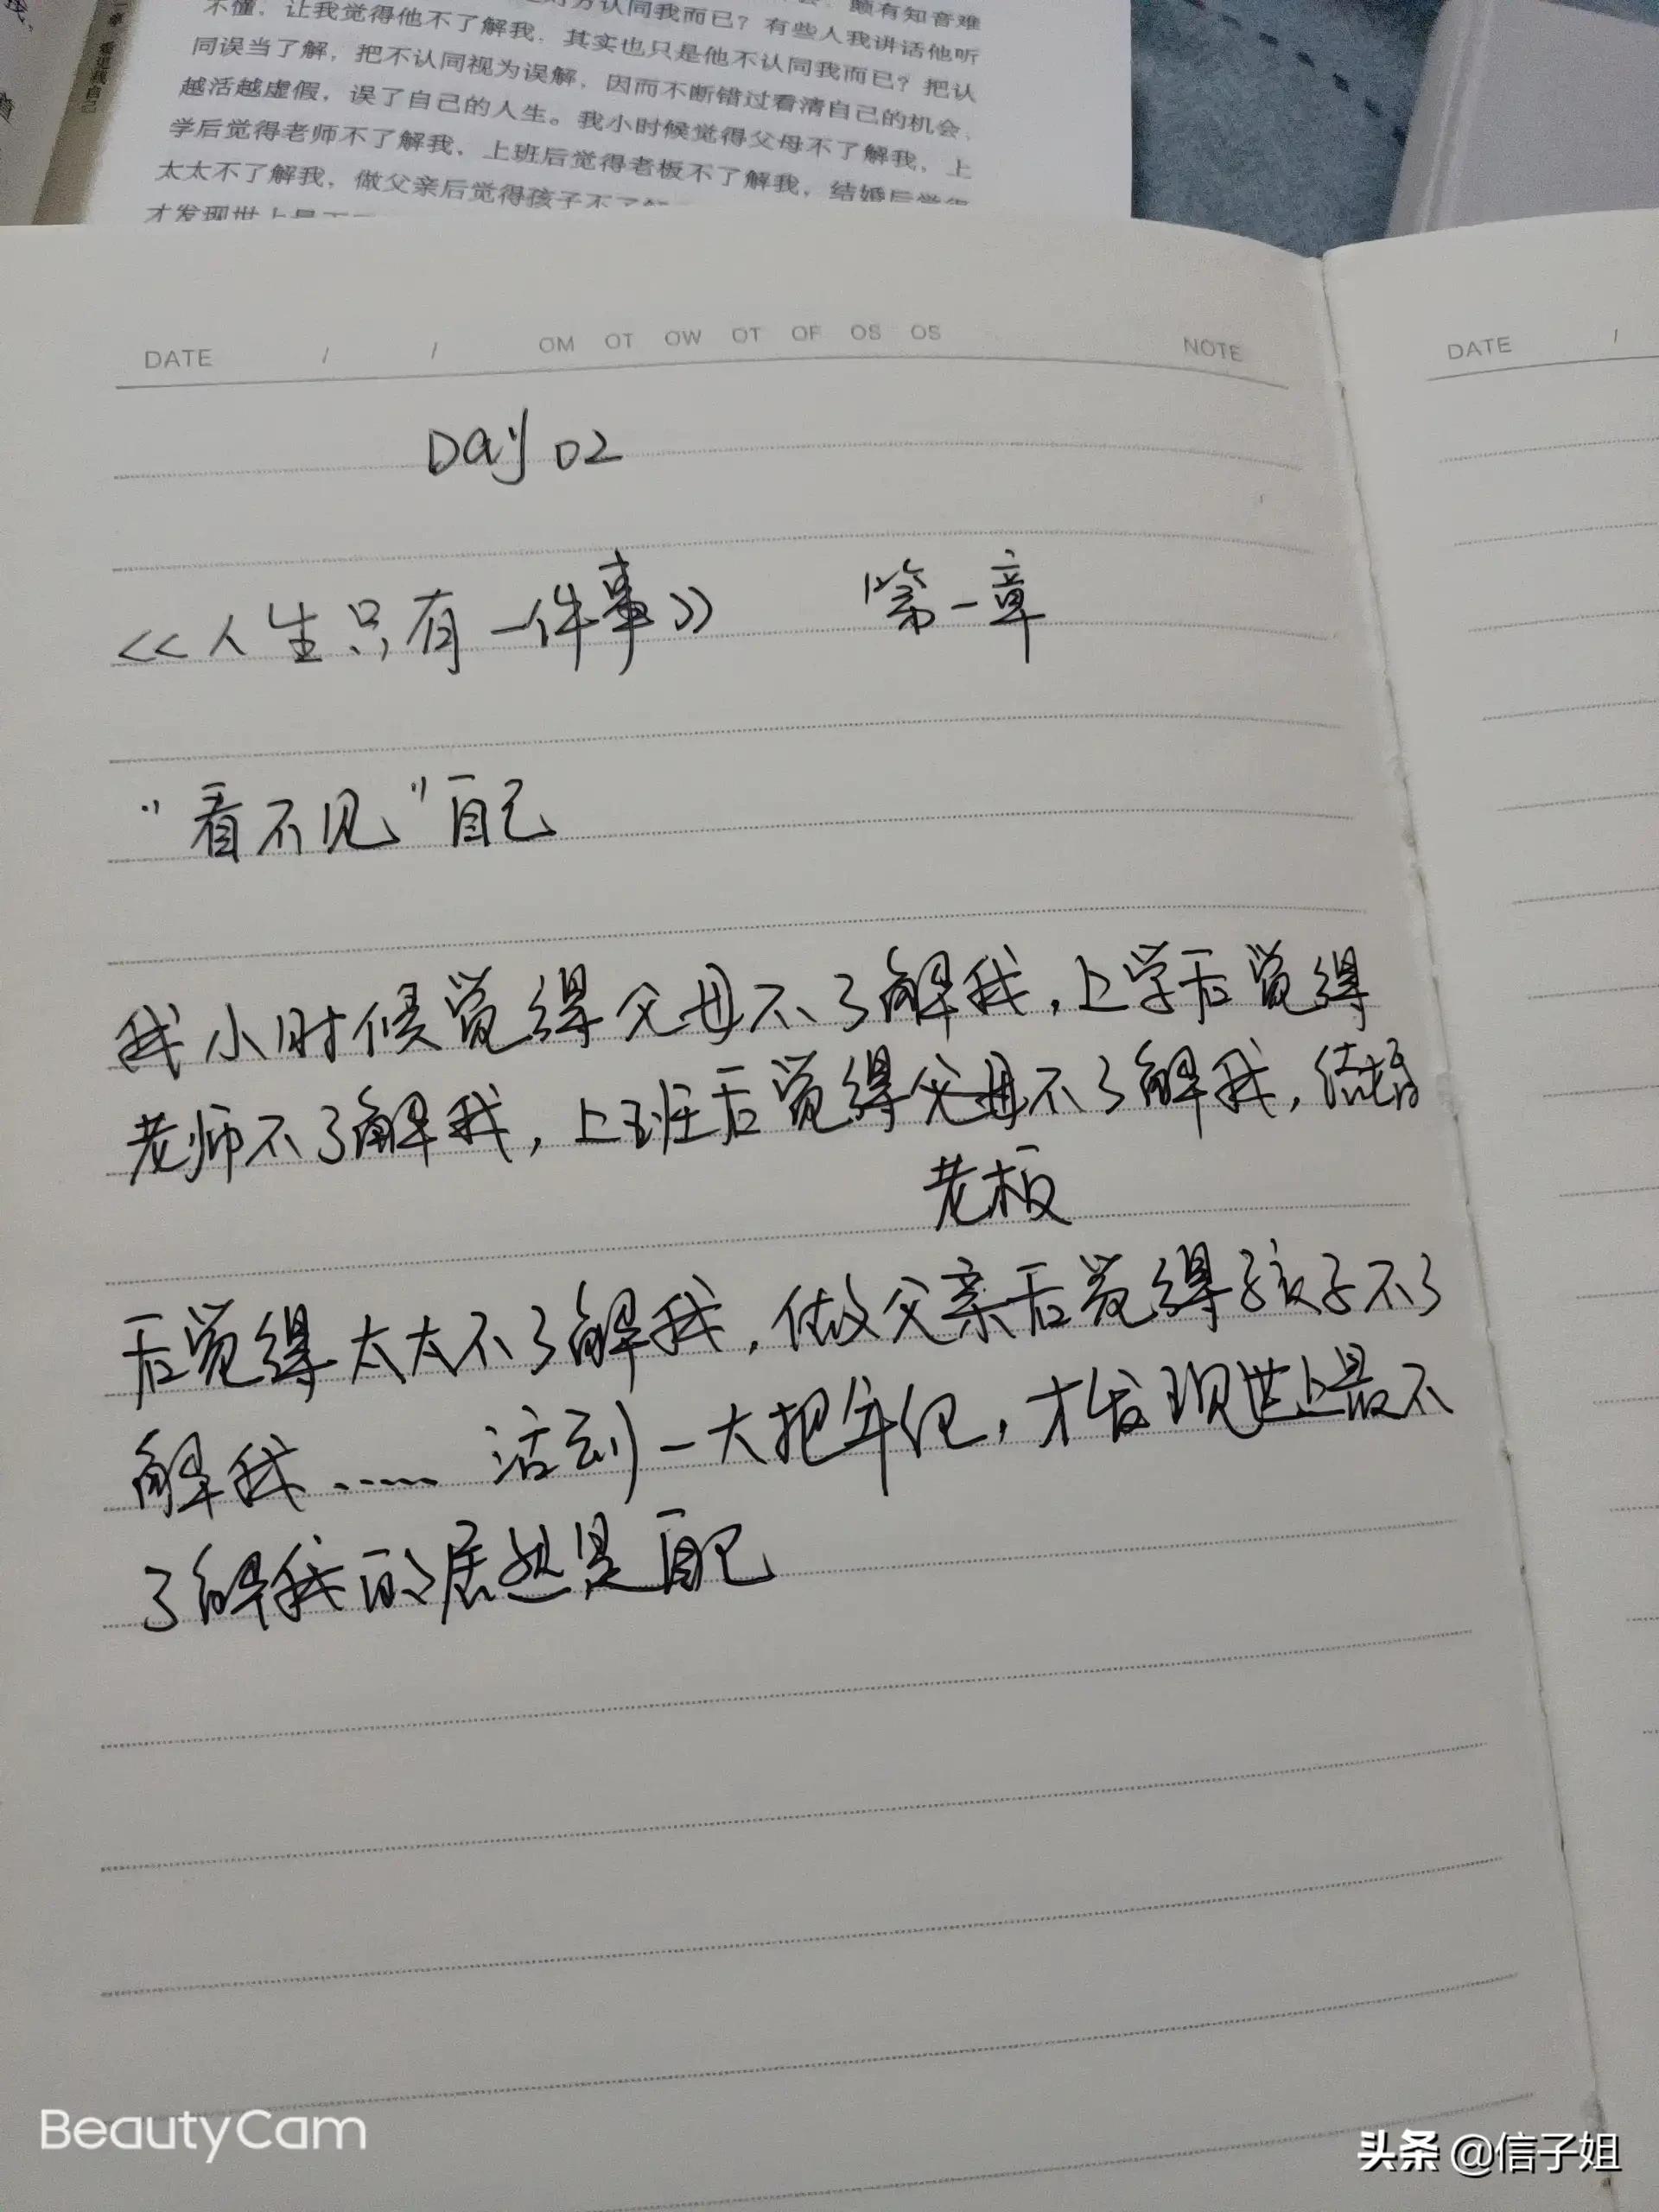 不懂，让我觉得他不了解我，其实也只是他不认同我而已？把认
方认同我而已？有些人我讲话他听
颇有知音难
同误当了解，把不认同视为误解，因而不断错过看清自己的机会，
越活越虚假，误了自己的人生。我小时候觉得父母不了解我，上
学后觉得老师不了解我，上班后觉得老板不了解我，结婚后觉得
太太不了解我，做父亲后觉得孩子不了解
才发现世上最不
DATE / / OM OT OW OT OF OS OS NOTE
DATE /
Day 02
<<人生只有一件事>> 第一章
“看不见”自己
我小时候觉得父母不了解我，上学后觉得
老师不了解我，上班后觉得父母不了解我，结婚
老板
后觉得太太不了解我，做父亲后觉得孩子不了
解我…… 活到一大把年纪，才发现世上最不
了解我的居然是自己
BeautyCam
头条 @信子姐